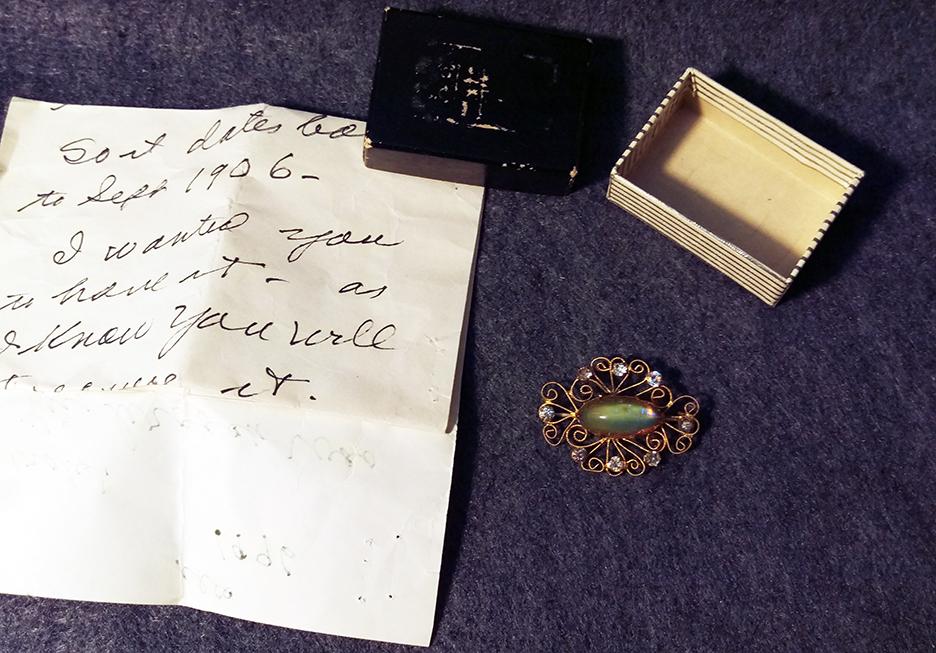 So it dates
to Sept 1906-
I wanted you
to have it - as
I Know you will
it.